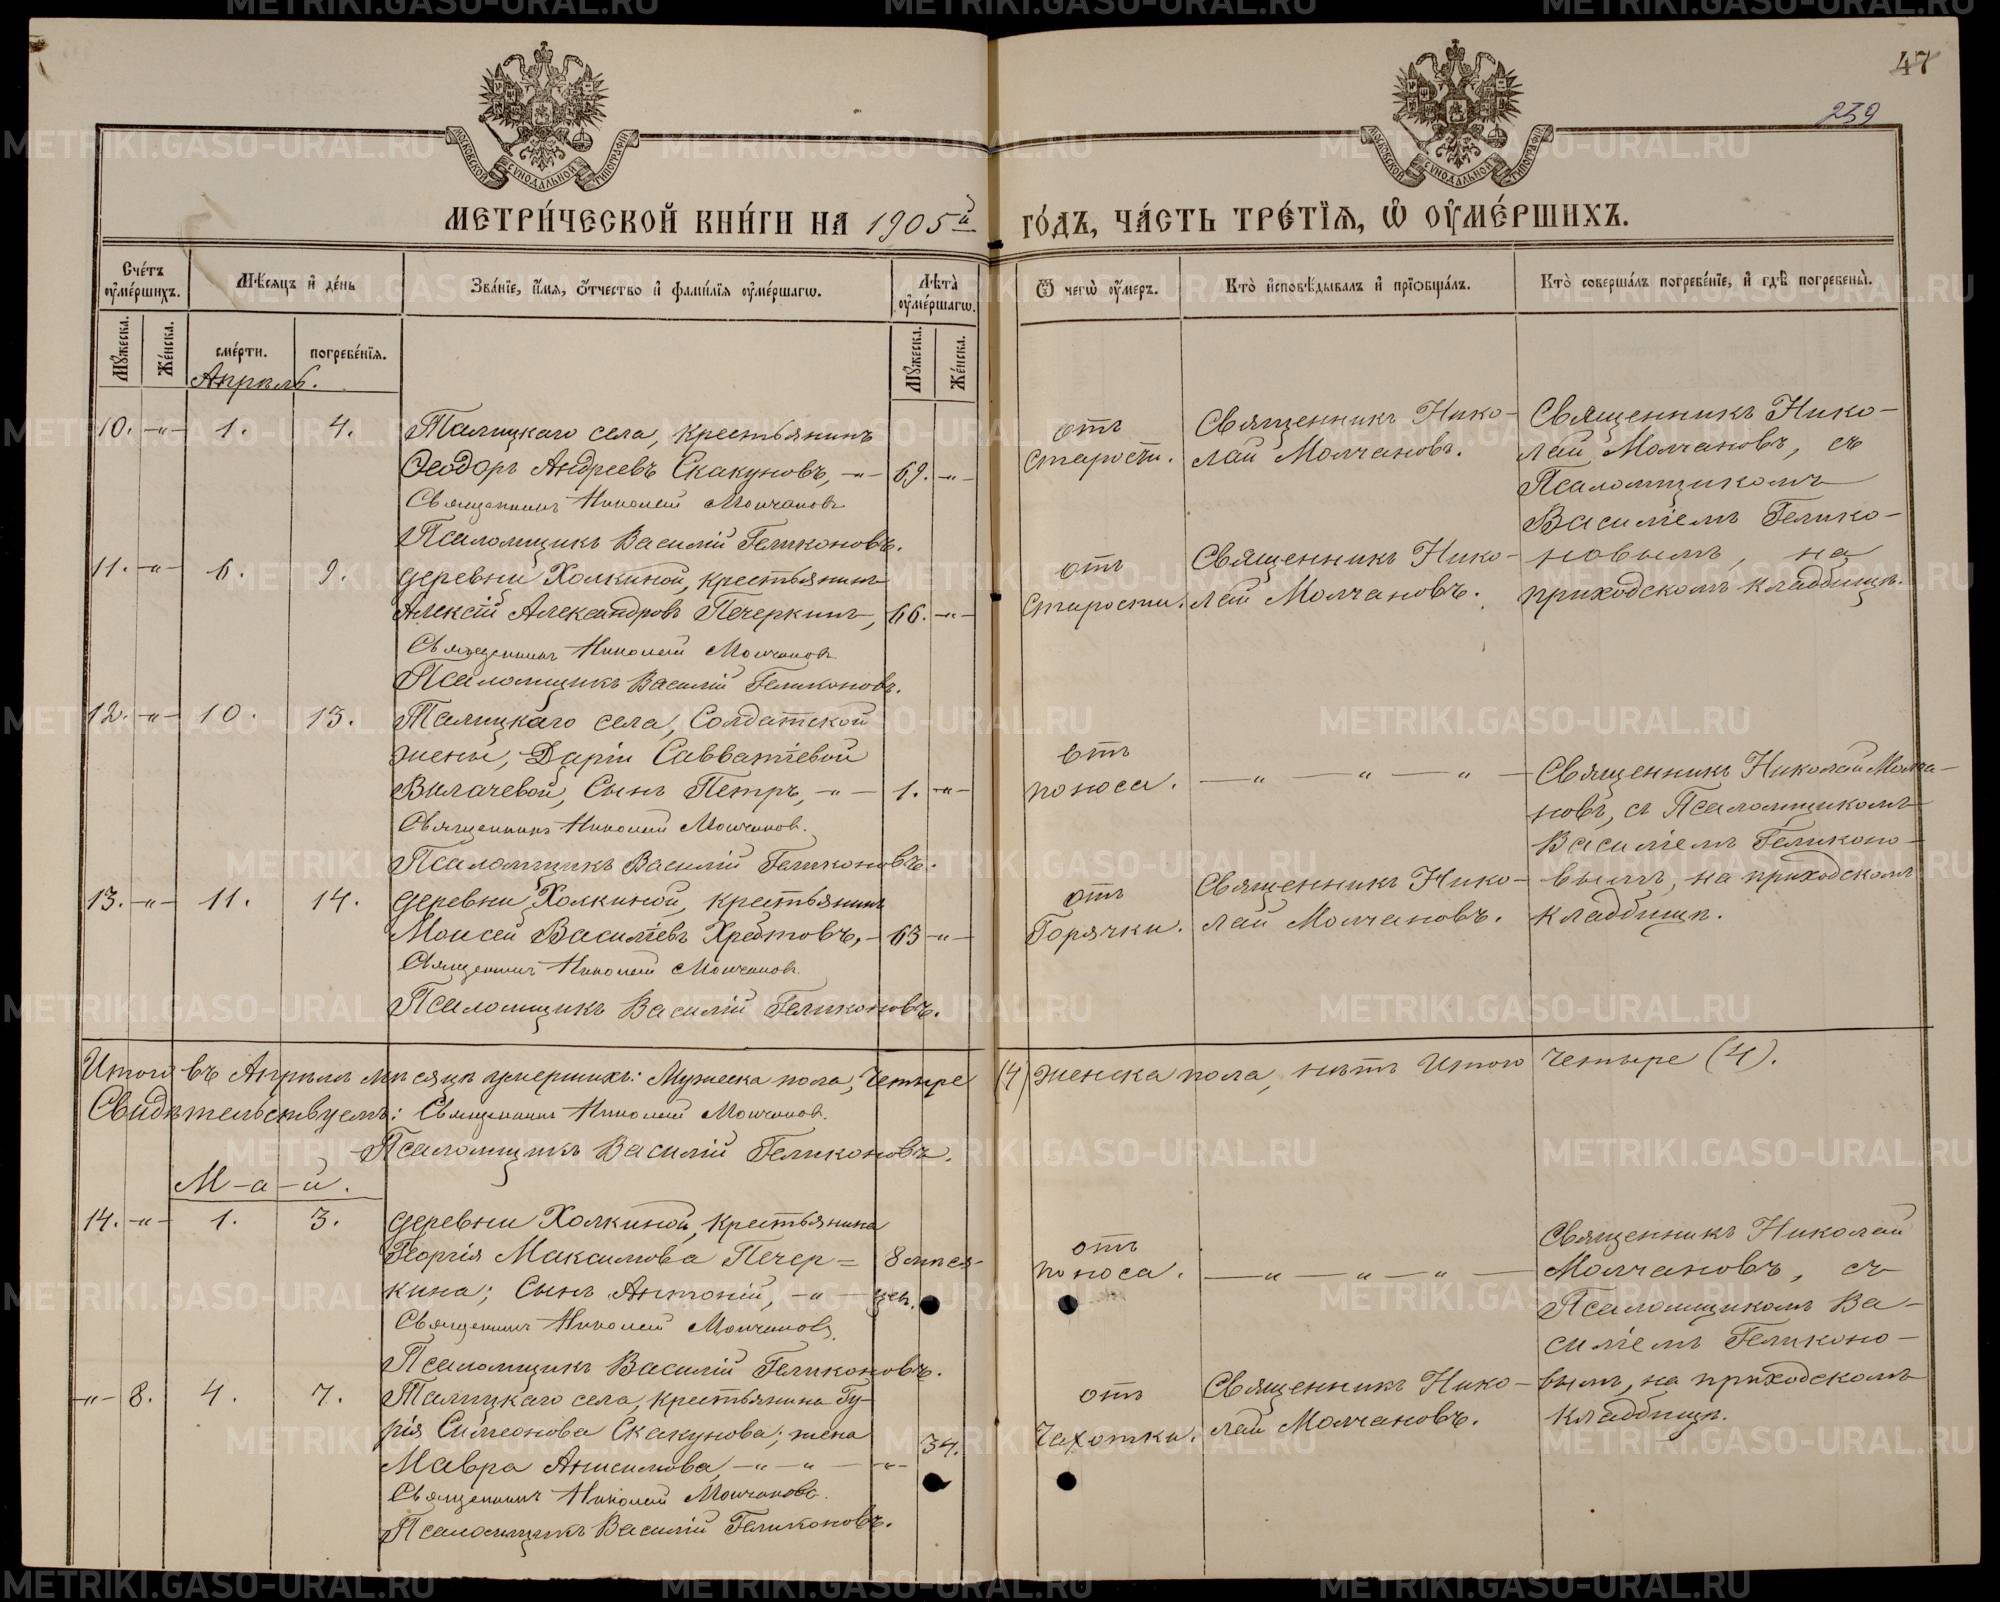 47
239
МОСКОВСКОЙ СѴНОДАЛЬНОЙ ТИПОГРАФІИ
МОСКОВСКОЙ СѴНОДАЛЬНОЙ ТИПОГРАФІИ
МЕТРИ́ЧЕСКОЙ КНИ́ГИ НА 1905й ГО́ДЪ, ЧА́СТЬ ТРЕ́ТІѦ, Ѡ҆ ОУ҆МЕ́РШИХЪ.
Сче́тъ оу҆ме́ршихъ.
Мѣ́сѧцъ и҆ де́нь
Зва́нїе, и҆́мѧ, ѻ҆́тчество и҆ фами́лїѧ оу҆ме́ршагѡ.
Лѣ́та̀ оу҆ме́ршагѡ.
Ѿ чегѡ̀ оу҆́меръ.
Кто̀ и҆сповѣ́дывалъ и҆ прїѡбща́лъ.
Кто̀ соверша́лъ погребе́нїе, и҆ гдѣ̀ погребены̀.
Мꙋ́жеска.
Же́нска.
сме́рти.
погребе́нїѧ.
Мꙋ́жеска.
Же́нска.
Апрѣль.
10. -"- 1. 4. Талицкаго села, крестьянинъ
Ѳеодоръ Андреевъ Скакуновъ, -"- 69. -"-
Священникъ Николай Молчановъ
Псаломщикъ Василій Геликоновъ.
отъ
старости.
Священникъ Нико-
лай Молчановъ.
Священникъ Нико-
лай Молчановъ, съ
Псаломщикомъ
Василіемъ Гелико-
новымъ, на
приходскомъ кладбищѣ.
11. -"- 6. 9. деревни Холкиной, крестьянинъ
Алексій Александровъ Печеркинъ, 66. -"-
Священникъ Николай Молчановъ
Псаломщикъ Василій Геликоновъ.
отъ
старости.
Священникъ Нико-
лай Молчановъ.
12. -"- 10. 13. Талицкаго села, Солдатской
жены, Даріи Савватіевой
Вилачевой, сынъ Петръ, -"- 1. -"-
Священникъ Николай Молчановъ.
Псаломщикъ Василій Геликоновъ.
отъ
поноса. -"-"-"-
Священникъ Николай Молча-
новъ, съ Псаломщикомъ
Василіемъ Геликоно-
вымъ, на приходскомъ
кладбищѣ.
13. -"- 11. 14. деревни Холкиной, крестьянинъ
Моисей Василіевъ Хребтовъ, - 63 -"-
Священникъ Николай Молчановъ.
Псаломщикъ Василій Геликоновъ.
отъ
Горячки.
Священникъ Нико-
лай Молчановъ.
Итого въ Апрѣлѣ мѣсяцѣ умершихъ: Мужеска пола, четыре (4) женска пола, нѣтъ Итого четыре (4).
Свидѣтельствуемъ: Священникъ Николай Молчановъ.
Псаломщикъ Василій Геликоновъ.
М-а-й.
14. -"- 1. 3. деревни Холкиной, крестьянина
Георгія Максимова Печер= 8 мѣся-
кина; сынъ Антоній, -"- цев.
Священникъ Николай Молчановъ.
Псаломщикъ Василій Геликоновъ.
отъ
поноса. -"-"-"-
Священникъ Николай
Молчановъ, съ
Псаломщикомъ Ва-
силіемъ Геликоно-
вымъ, на приходскомъ
кладбищѣ.
-"- 8. 4. 7. Талицкаго села, крестьянина Гу-
рія Симеонова Скакунова; жена
Мавра Анисимова, -"-"- -"- 34.
Священникъ Николай Молчановъ.
Псаломщикъ Василій Геликоновъ.
отъ
Чахотки.
Священникъ Нико-
лай Молчановъ.
METRIKI.GASO-URAL.RU